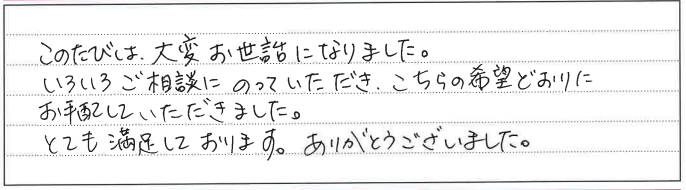 このたびは、大変お世話になりました。
いろいろご相談にのっていただき、こちらの希望どおりに
お手配していただきました。
とても満足しております。ありがとうございました。